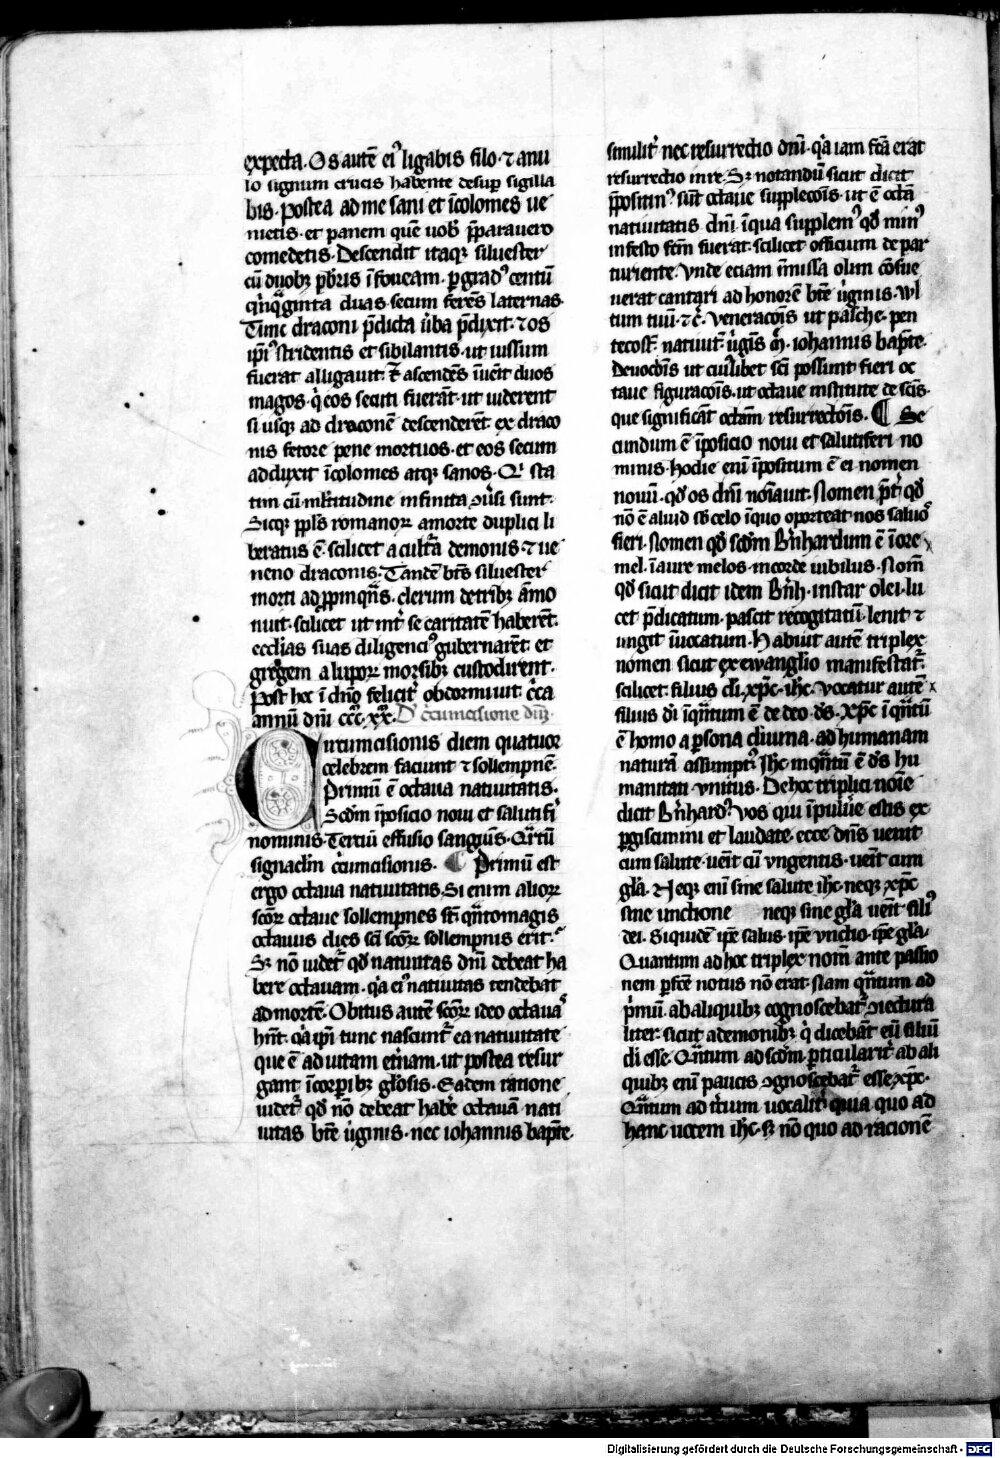 expecta. Os autē eiꝰ ligabis filo ⁊ anu
lo signum crucis habente desup̄ sigilla
bis. Postea ad me sani et īcolomes ue
nietis. et panem quē uob̄ p̄paravero
comedetis. Descendit itaqꝫ siluester
cū duobꝫ p̄br̄is ī foueam. p gradꝰ centū
q̄nq̄ginta duas secum ferēs laternas.
Tunc draconi p̄dicta ūba p̄dixit. ⁊ os
ip̄iꝰ stridentis et sibilantis. ut iussum
fuerat alligauit. ⁊ ascendēs īuēit duos
magos. q̄ eos secuti fuerāt. ut uiderent
si usqꝫ ad draconē descenderēt. ex draco
nis fetore pene mortuos. et eos secum
adduxit īcolomes atqꝫ sanos. Qi sta
tim cū mltitudine infinita ꝯūsi sunt.
Sicqꝫ ppl̄s romanoꝝ a morte duplici li
beratus ē. scilicet a cultr̄a demonis. ⁊ ue
neno draconis. Tandē bt̄s siluester
morti ad ꝓpinqn̄s. clerum de tribꝫ āmo
nuit. scilicet ut int̄ se caritatē haberēt.
eccl̄ias suas diligenciꝰ gubernarēt. et
gregem a lupoꝝ morsibꝫ custodirent.
Post hec ī dn̄o felicit̄ obdormiuit. c̄ca
annū dn̄i ccc. xx. D' c̄cumcisione dn̄i.
Circumcisionis diem quatuor
celebrem faciunt ⁊ sollempnē.
Primū ē octaua natiuitatis.
Scd̄m īposicio noui et salutif̄i
nominis. Terciū effusio sanguīs. Qr̄tū
signaclm̄ c̄cumcisionis. ¶ Primū est
ergo octaua natiuitatis. Si enim alioꝝ
scōꝝ octaue sollempnes sūt. qn̄to magis
octauus dies scī scōꝝ sollempnis erit.
Sꝫ nō uidet̄ qd̄ natiuitas dn̄i debeat ha
bere octauam. q̄a eiꝰ natiuitas tendebat
ad mortē. Obitus autē scōꝝ ideo octauā
hn̄t. q̄a ip̄i tunc nascunt̄ ea natiuitate
que ē ad uitam et̄nam. ut postea resur
gant ī corp̄ibꝫ gl̄osis. Eadem ratione
uidet̄ qd̄ nō debeat hab̄e octauā nati
uitas bt̄e ūginis. nec iohannis bapt̄e.
similit̄ nec resurrectio dn̄i. q̄a iam fc̄a erat
resurrectio in re. Sꝫ notandū sicut dicit
p̄positinꝰ sūt octaue supplecōis. ut ē octā
natiuitatis dn̄i. ī qua supplemꝰ qd̄ minꝰ
in festo fc̄m fuerat. scilicet officium de par
turiente. Vnde eciam ī missa olim cōsue
uerat cantari ad honorē bt̄e ūginis. Vl
tum tuū. ⁊c̄. Veneracōis ut pasche. pen
tecost̄. natiuit̄. ūgīs m̄. iohannis bapt̄e.
Deuocōis ut cuiꝰlibet scī possunt fieri oc
taue figuracōis. ut octaue institute de scīs.
que significāt octām resurrectōis. ¶ Se
cundum ē īposicio noui et salutiferi no
minis. hodie enī īpositum ē ei nomen
nouū. qd̄ os dn̄i noīauit. Nomen p̄t̄ qd̄
nō ē aliud sb̄ celo ī quo oporteat nos saluoˢ
fieri. Nomen qd̄ scd̄m Br̄nhardum ē ī ore
mel. ī aure melos. in corde iubilus. Nom̄
qd̄ sicut dicit idem Br̄nh̄. instar olei. lu
cet p̄dicatum. pascit recogitatū. lenit ⁊
ungit īuocatum. Habuit autē triplex
nomen sicut ex ewanglio manifestat̄.
scilicet. filius dī. xp̄c. ih̄c. Vocatur autē
filius dī īqn̄tum ē de deo dˢs. Xp̄c īqn̄tū
ē homo a p̄sona diuina. ad humanam
naturā assumptꝰ. Ih̄c īqn̄tū ē dˢs hu
manitati vnitus. De hoc triplici noīe
dicit Br̄nhardꝰ. Vos qui ī puluēe estis ex
p̄giscimini et laudate. ecce dn̄s uenit
cum salute. uēit cū vngentis. uēit cum
gl̄a. Neqꝫ enī sine salute ih̄c. neqꝫ xp̄c
sine unctione neqꝫ sine gl̄a uēit filiꝰ
dei. Siquidē ip̄e salus. ip̄e vnctio. ip̄e gl̄a.
Quantum ad hoc triplex nom̄ ante passio
nem p̄fcē notus nō erat. Nam qn̄tum ad
p̄mū ab aliquibꝫ cognoscebat̄ ꝯiectura
liter. sicut a demonibꝫ q̄ dicebāt eū filiū
dī esse. Qn̄tum ad scd̄m p̄ticularit̄ ab ali
quibꝫ enī paucis ꝯgnoscebat̄ esse xp̄c.
Qn̄tum ad t̄cium uocalit̄ quia quo ad
hanc uocem ih̄c. sꝫ nō quo ad racionē
Digitalisierung gefördert durch die Deutsche Forschungsgemeinschaft - DFG